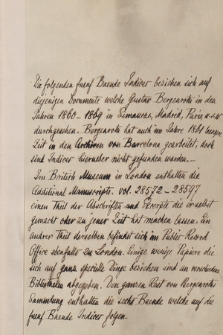 Die folgenden fuenf Baende Indices beziehen sich auf
diejenigen Documente welche Gustav Bergenroth in den
Jahren 1860–1869 in Simancas, Madrid, Paris u.s.w.
durchgesehen. Bergenroth hat auch im Jahre 1861
Zeit in den Archiven von Barcelona gearbeitet, doch
sind Indices hierueber nicht gefunden worden.—
Im British Museum in London enthalten die
Additional Manuscripts. vol. 28572–28597
einen Theil der Abschriften und Excerpte die er selbst
gemacht oder zu jener Zeit hat machen lassen. Ein
anderer Theil derselben befindet sich im Public Record
Office ebenfalls zu London. Einige wenige Papiere die
sich auf ganz specielle Dinge beziehen sind an verschiedene
Bibliotheken abgegeben. Den ganzen Rest von Bergenroths
Sammlung enthalten die sechs Baende welche auf die
fuenf Baende Indices folgen.